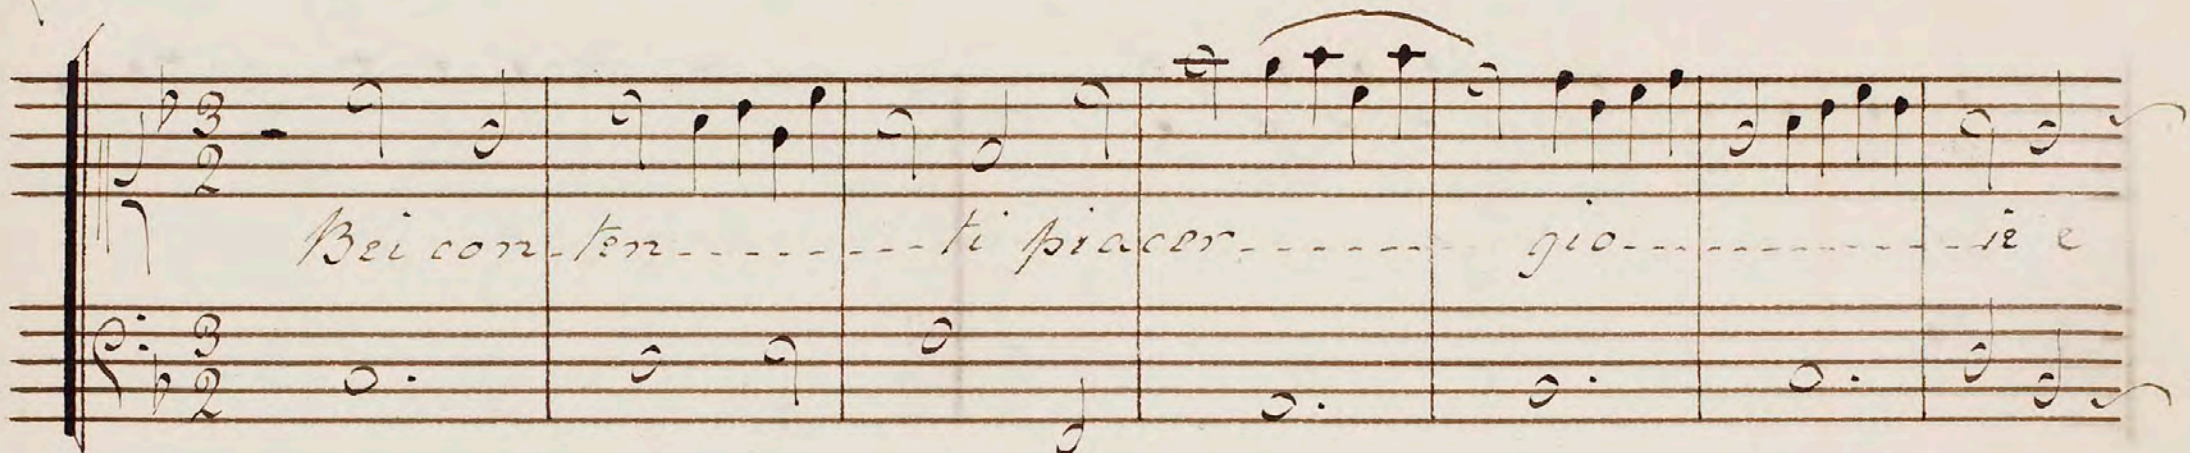 3
2
Bei con-ten---------ti piacer------- gio-----------ie e
3
2